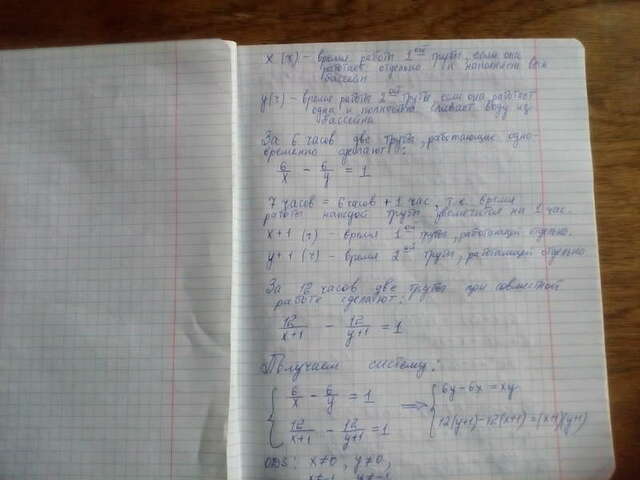 x (ч) – время работы 1ой трубы, если она
работает отдельно и наполняет весь
бассейн
y(ч) – время работы 2ой трубы если она работает
одна и полностью сливает воду из
бассейна
За 6 часов две трубы, работающие одно-
временно сделают:
6/x - 6/y = 1
7 часов = 6 часов + 1 час, т.к. время
работы каждой трубы увеличится на 1 час.
x+1 (ч) – время 1ой трубы, работающей отдельно.
y+1 (ч) – время 2ой трубы, работающей отдельно
За 12 часов две трубы при совместной
работе сделают:
12/x+1 - 12/y+1 = 1
Получаем систему:
{ 6/x - 6/y = 1 => { 6y - 6x = xy
{ 12/x+1 - 12/y+1 = 1 { 12(y+1)-12(x+1)=(x+1)(y+1)
ОДЗ: x≠0, y≠0,
x≠-1 y≠-1